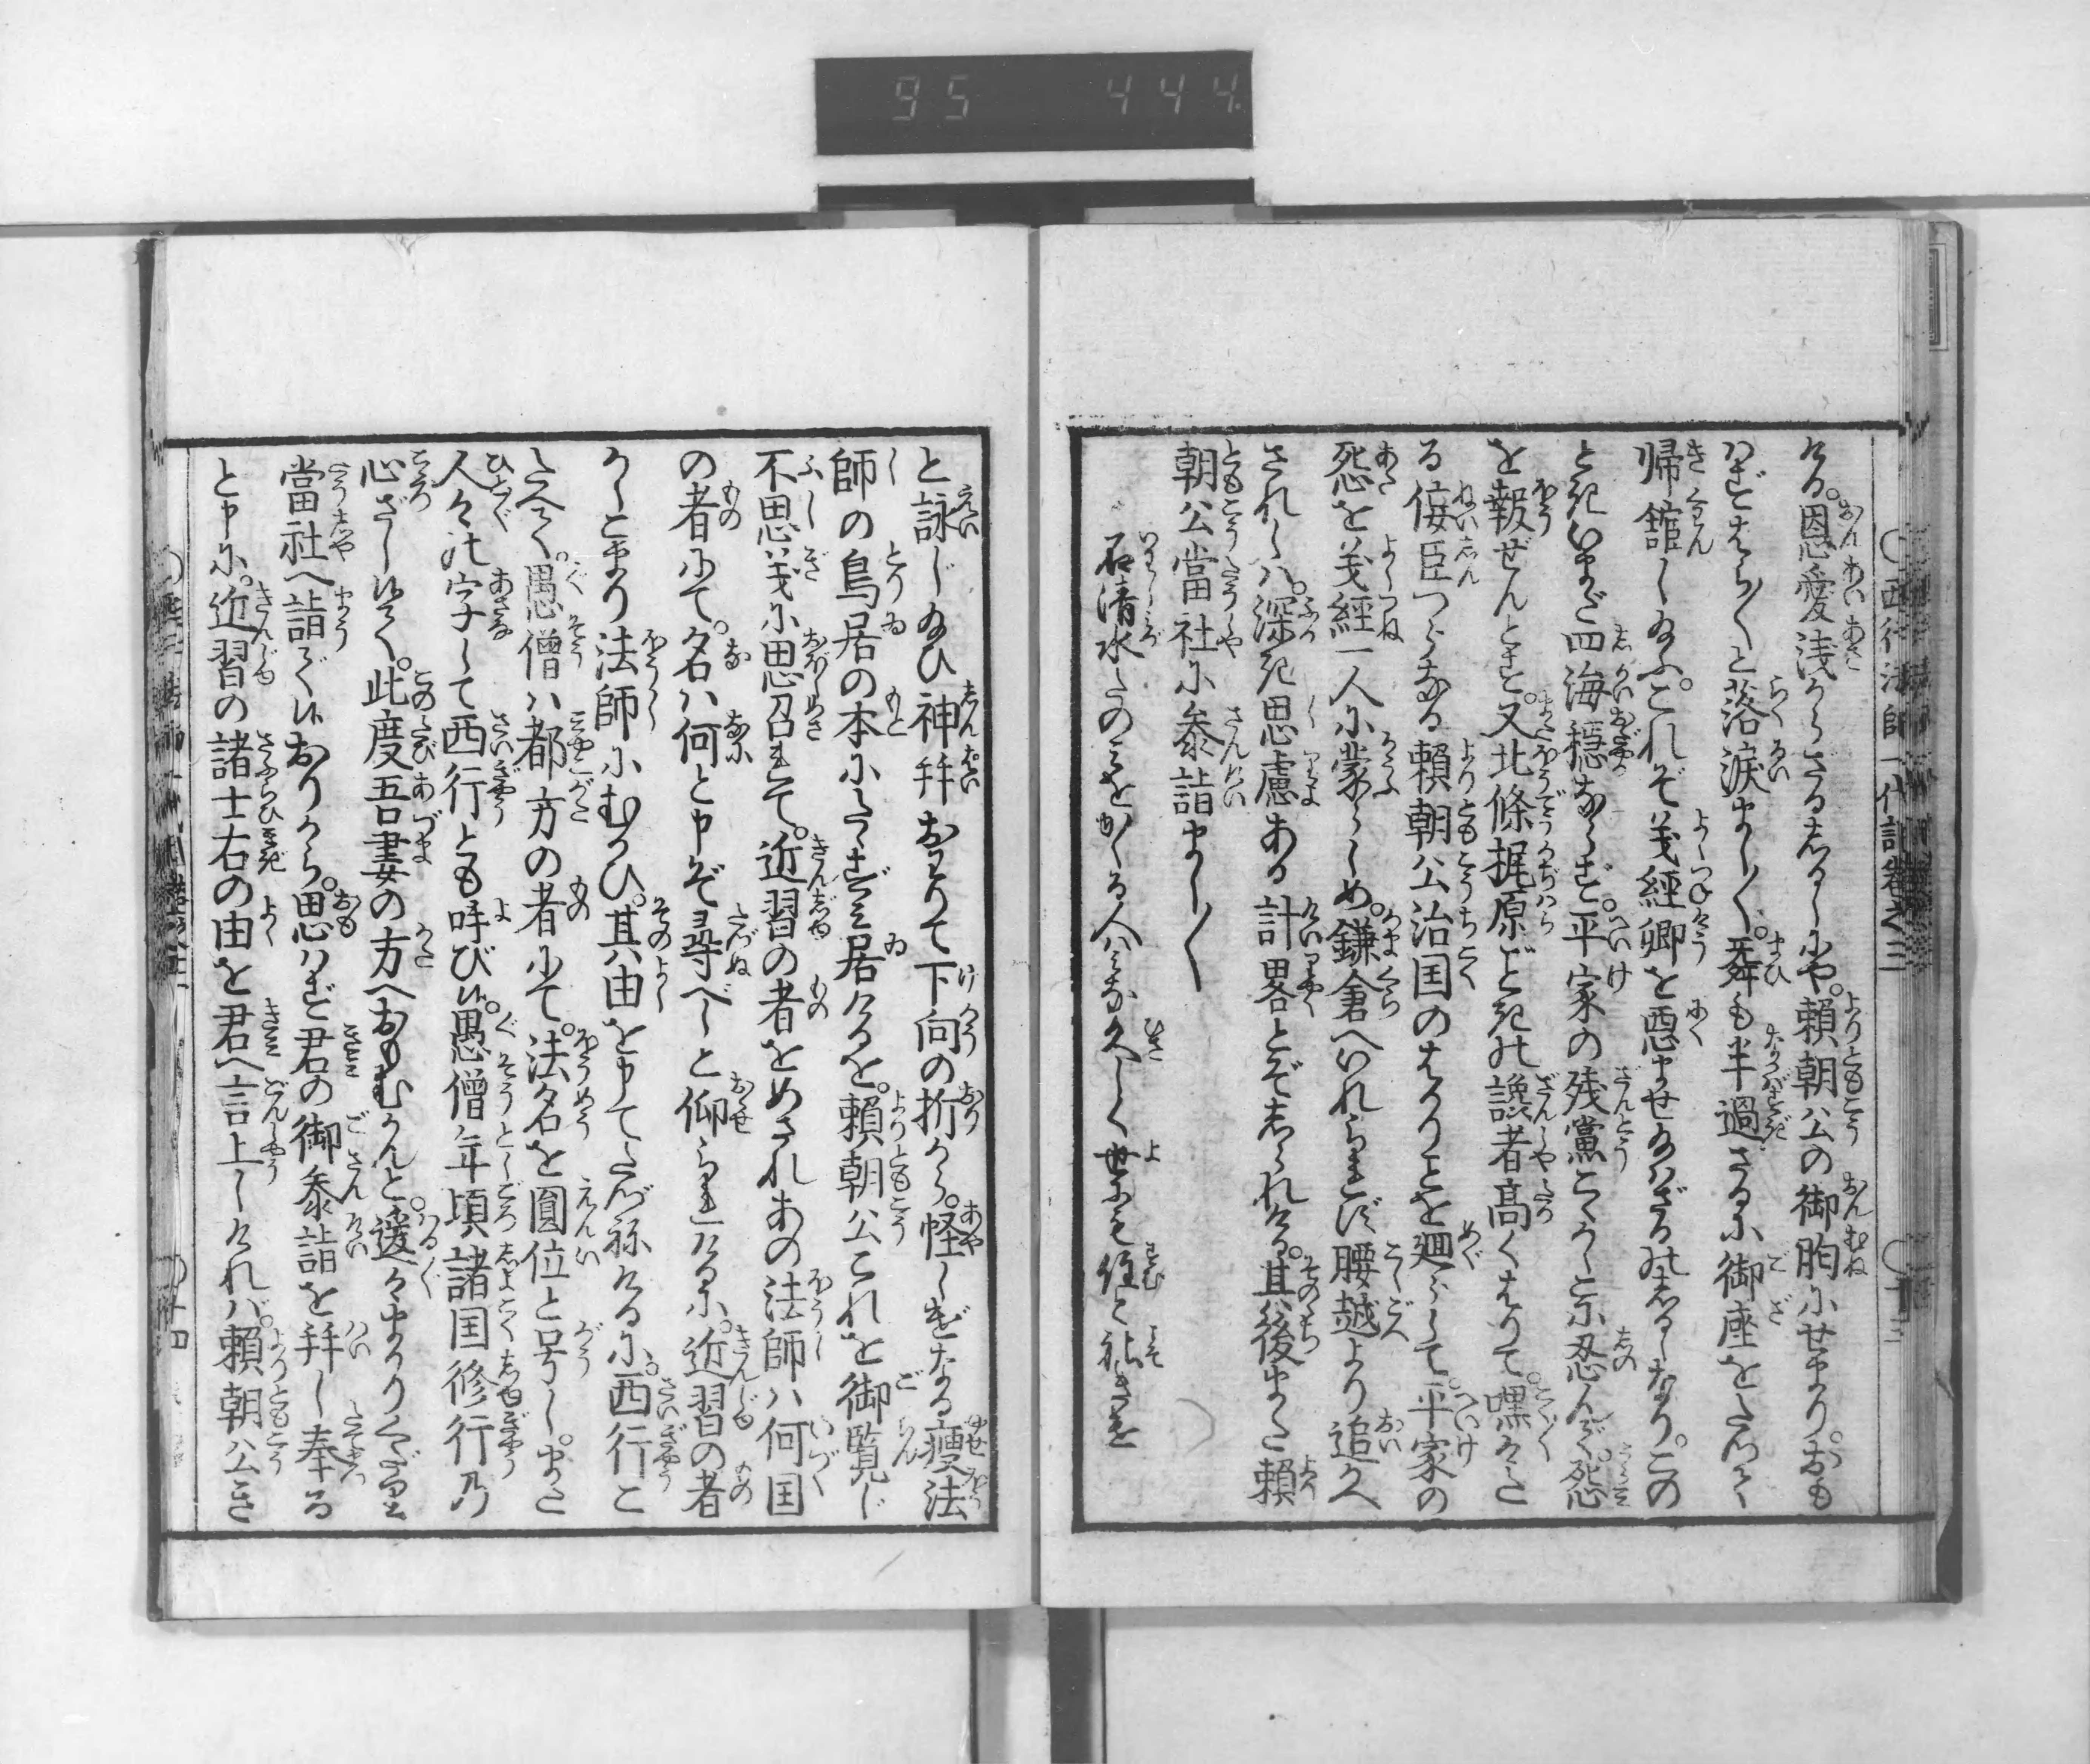 95 444
西行法師一代記巻之三
ける。恩愛浅からざるしるしにや。頼朝公の御胸にせまり。おも
はずはら〳〵と落涙まし〳〵。舞も半過さるに御座をたつて
帰舘し給ふ。これぞ義經卿を悪ませ給はざるのしるしなり。この
ときいまだ四海穏ならず。平家の残黨こゝかしこに忍んで。死
を報ぜんとす。又北條梶原ごときの讒者高くはりて。嘿々た
る侫臣つらなる頼朝公治国のはかりことを廻らして。平家の
怨を義經一人に蒙らしめ。鎌倉へいれられず腰越より追かへ
されしハ。深き思慮ある計畧とぞしられける。其後また頼
朝公當社に参詣まし〳〵
石清水たのみをかくる人ハみな久しく世にも住とこそきけ
と詠じ給ひ神拝おはりて下向の折から。怪しげなる痩法
師の鳥居の本にたゝずみ居けるを。頼朝公これを御覧じ
不思義に思召れて。近習の者をめされあの法師ハ何国
の者にて。名ハ何と申ぞ尋べしと仰られけるに。近習の者
かしこまり法師にむかひ。其由を申てたづねけるに。西行こ
たへて。愚僧ハ都方の者にて。法名を圓位と号し。また
人々の字して西行とも呼び候。愚僧年頃諸国修行の
心ざし候て。此度吾妻の方へおもむかんと。遥々まかりくだり
當社へ詣で候おりから。思はず君の御参詣を拝し奉る
と申に。近習の諸士右の由を君へ言上しければ。頼朝公き
十四